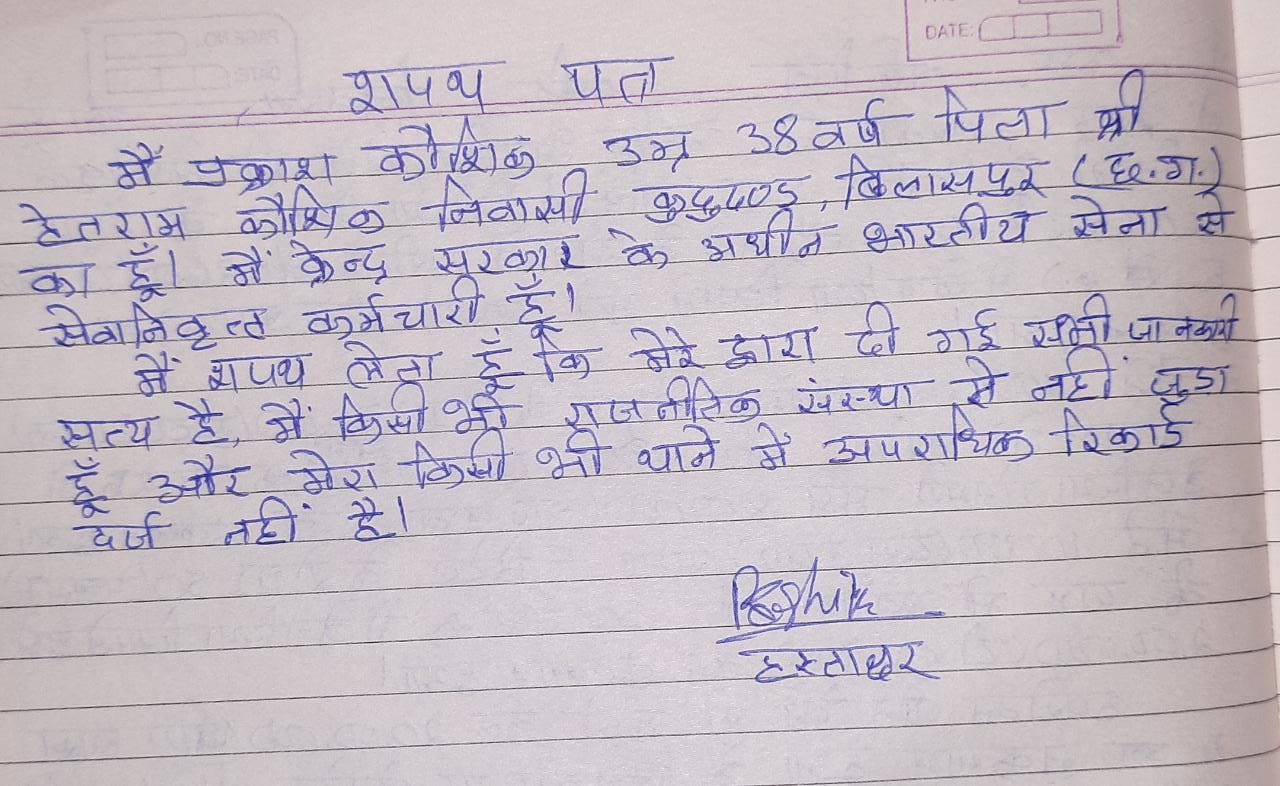 DATE:
शपथ पत्र
मैं प्रकाश कौशिक उम्र 38 वर्ष पिता श्री
हेतराम कौशिक निवासी कुदुदण्ड, बिलासपुर (छ.ग.)
का हूँ। मैं केन्द्र सरकार के अधीन भारतीय सेना से
सेवानिवृत्त कर्मचारी हूँ।
मैं शपथ लेता हूँ कि मेरे द्वारा दी गई सभी जानकारी
सत्य है, मैं किसी भी राजनीतिक संस्था से नहीं जुड़ा
हूँ और मेरा किसी भी थाने में अपराधिक रिकार्ड
दर्ज नहीं है।
हस्ताक्षर